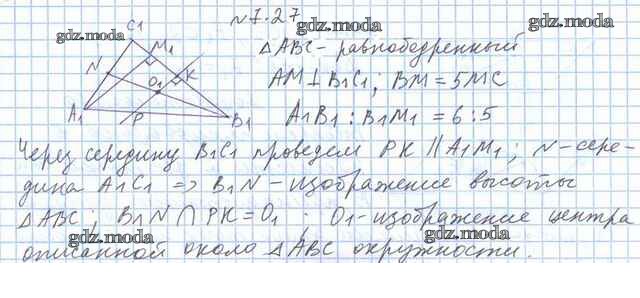 №7.27
gdz.moda
gdz.moda
C1
M1
N
O1
K
A1
P
B1
△ABC - равнобедренный
AM ⊥ B1C1; BM = 5MC
A1B1 : B1M1 = 6 : 5
gdz.moda
gdz.moda
Через середину B1C1 проведем PK || A1M1; N-сере-
дина A1C1 => B1N - изображение высоты
△ABC; B1N ∩ PK = O1 ; O1 - изображение центра
gdz.moda
gdz.moda
описанной около △ABC окружности.
gdz.moda